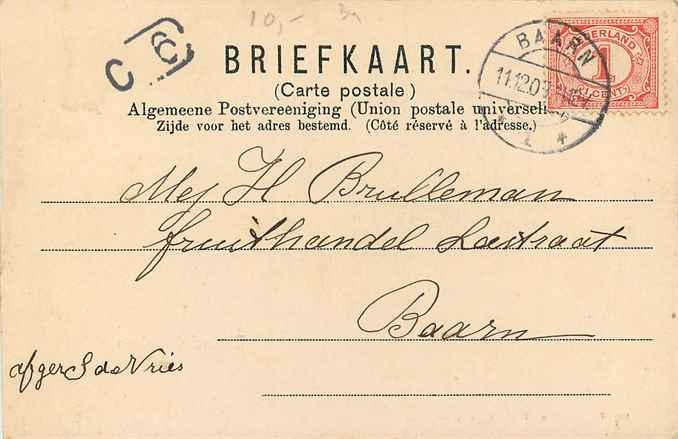 10,- Ba
C C
BRIEFKAART.
(Carte postale)
Algemeene Postvereeniging (Union postale universelle)
Zijde voor het adres bestemd. (Côté réservé à l'adresse.)
BAARN
11.12.0
NEDERLAND
1
CENT
Mej H Brulleman
fruithandel Laestraat
Baarn
afger S de Vries